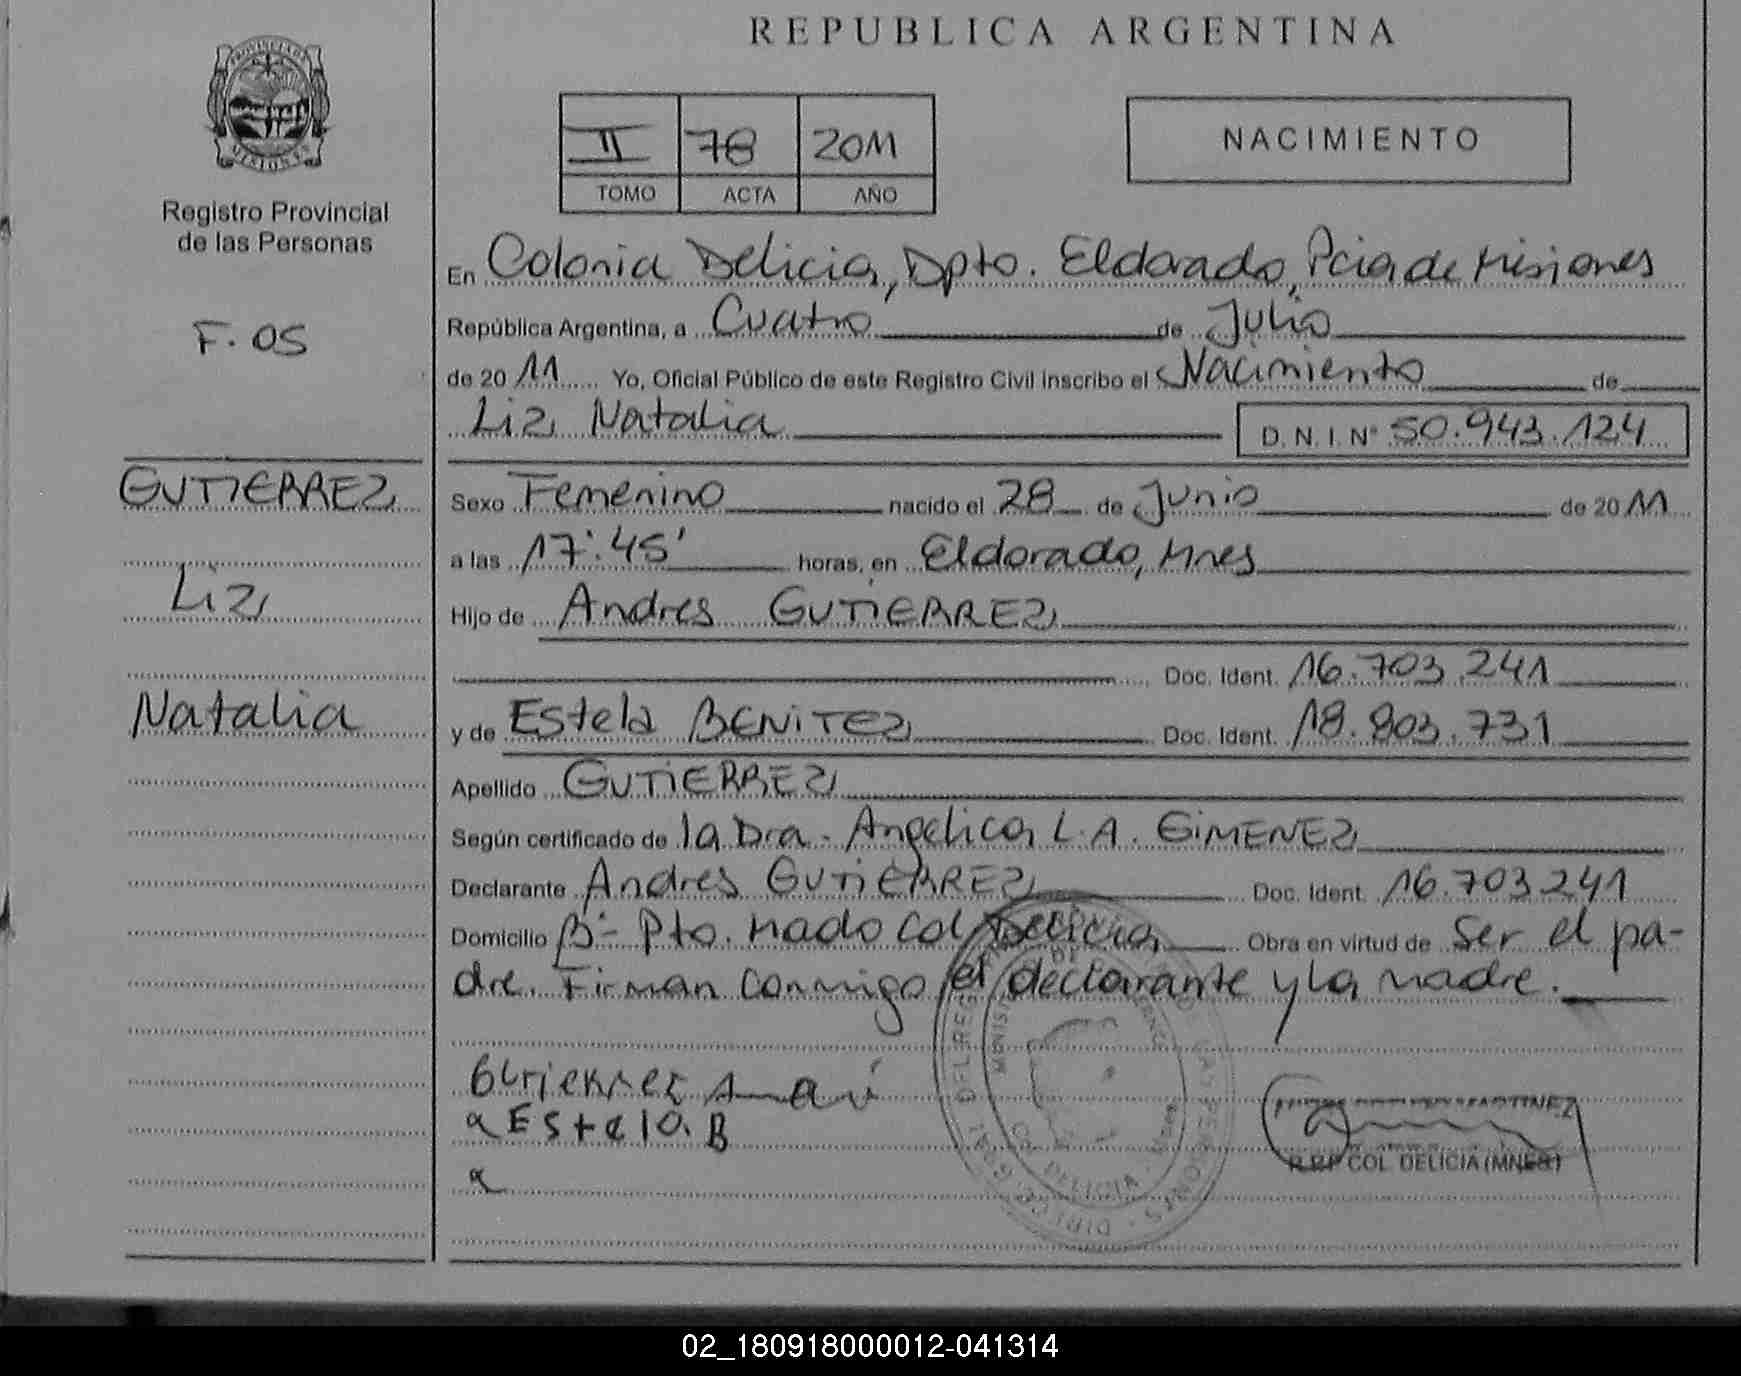 REPUBLICA ARGENTINA
PROVINCIA DE
MISIONES
Registro Provincial
de las Personas
F. 05
GUTIERREZ
Liz
Natalia
II 78 2011
TOMO ACTA AÑO
NACIMIENTO
En Colonia Delicia, Dpto. Eldorado, Pcia de Misiones
República Argentina, a Cuatro de Julio
de 20 11 Yo, Oficial Público de este Registro Civil inscribo el Nacimiento de
Liz Natalia D.N.I. Nº 50.943.124
Sexo Femenino nacido el 28 de Junio de 20 11
a las 17:45' horas, en Eldorado, Mnes
Hijo de Andres GUTIERREZ
Doc. Ident. 16.703.241
y de Estela BENITEZ Doc. Ident. 18.803.731
Apellido GUTIERREZ
Según certificado de la Dra. Angelica L.A. GIMENEZ
Declarante Andres GUTIERREZ Doc. Ident. 16.703241
Domicilio Bº Pto. Mado Col Delicia Obra en virtud de Ser el pa-
dre. Firman conmigo el declarante y la madre.
Gutierrez
Estela. B
MARTINEZ
R.R.P COL. DELICIA (MNES)
COL. DELICIA
02_180918000012-041314